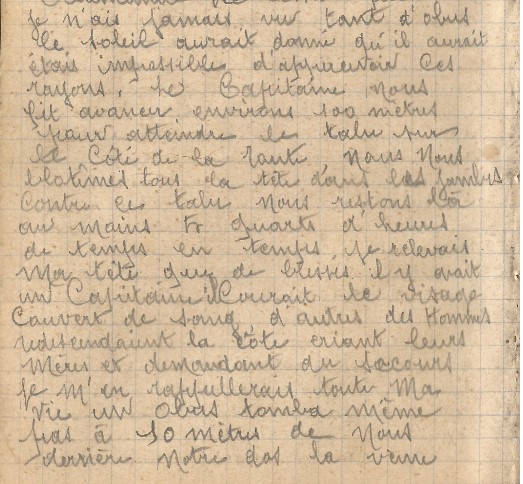 je n'ais jamais vu tant d'obus
le soleil aurait donné qu'il aurait
étais impossible d'appercevoir ces
rayons, le Capitaine nous
fit avancer environs 100 mètres
pour atteindre le talu sur
le Côté de la route, nous nous
blotimes tous la tête dans les jambes
contre ce talu nous restons là
au mains quarts d'heures
de temps en temps je relevais
ma tête que de blessés il y avait
un Capitaine Courait le visage
Couvert de sang d'autres des Hommes
redescendaient la Côte criant leurs
Mères et demandant du secours
je m'en rappellerais toute Ma
vie un Obus tomba même
pas à 10 mètres de Nous
derrière Notre dos la